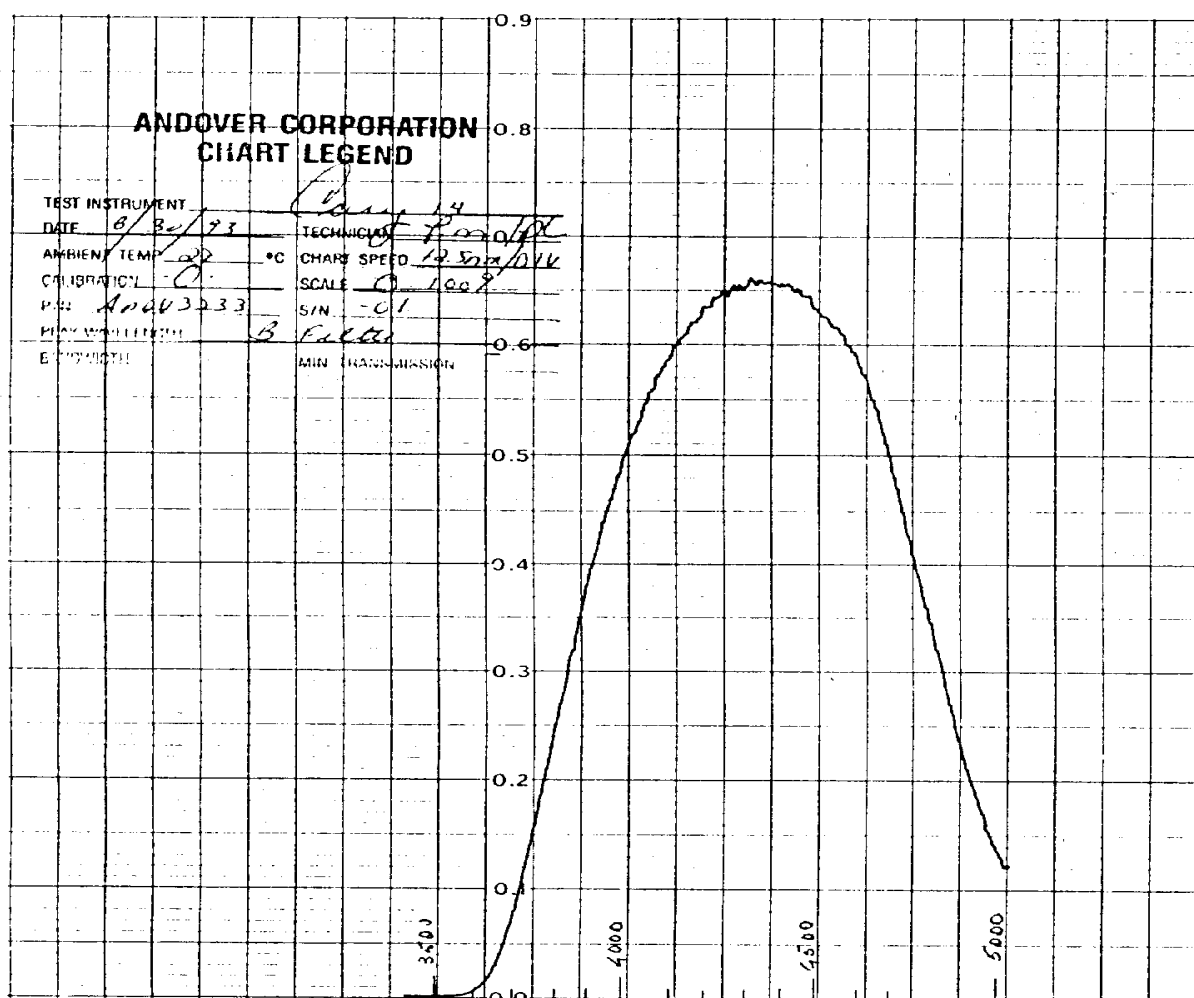 0.9
ANDOVER CORPORATION
CHART LEGEND
0.8
TEST INSTRUMENT Cary 14
DATE 8/30/93 TECHNICIAN
AMBIENT TEMP 22 °C CHART SPEED 12.5nm/DIV
CALIBRATION 0 SCALE 0 100%
P/N S/N -01
PEAK WAVELENGTH B Filter
0.6
BANDWIDTH MIN TRANSMISSION
0.5
0.4
0.3
0.2
0.1
3500 4000 4500 5000
0.0